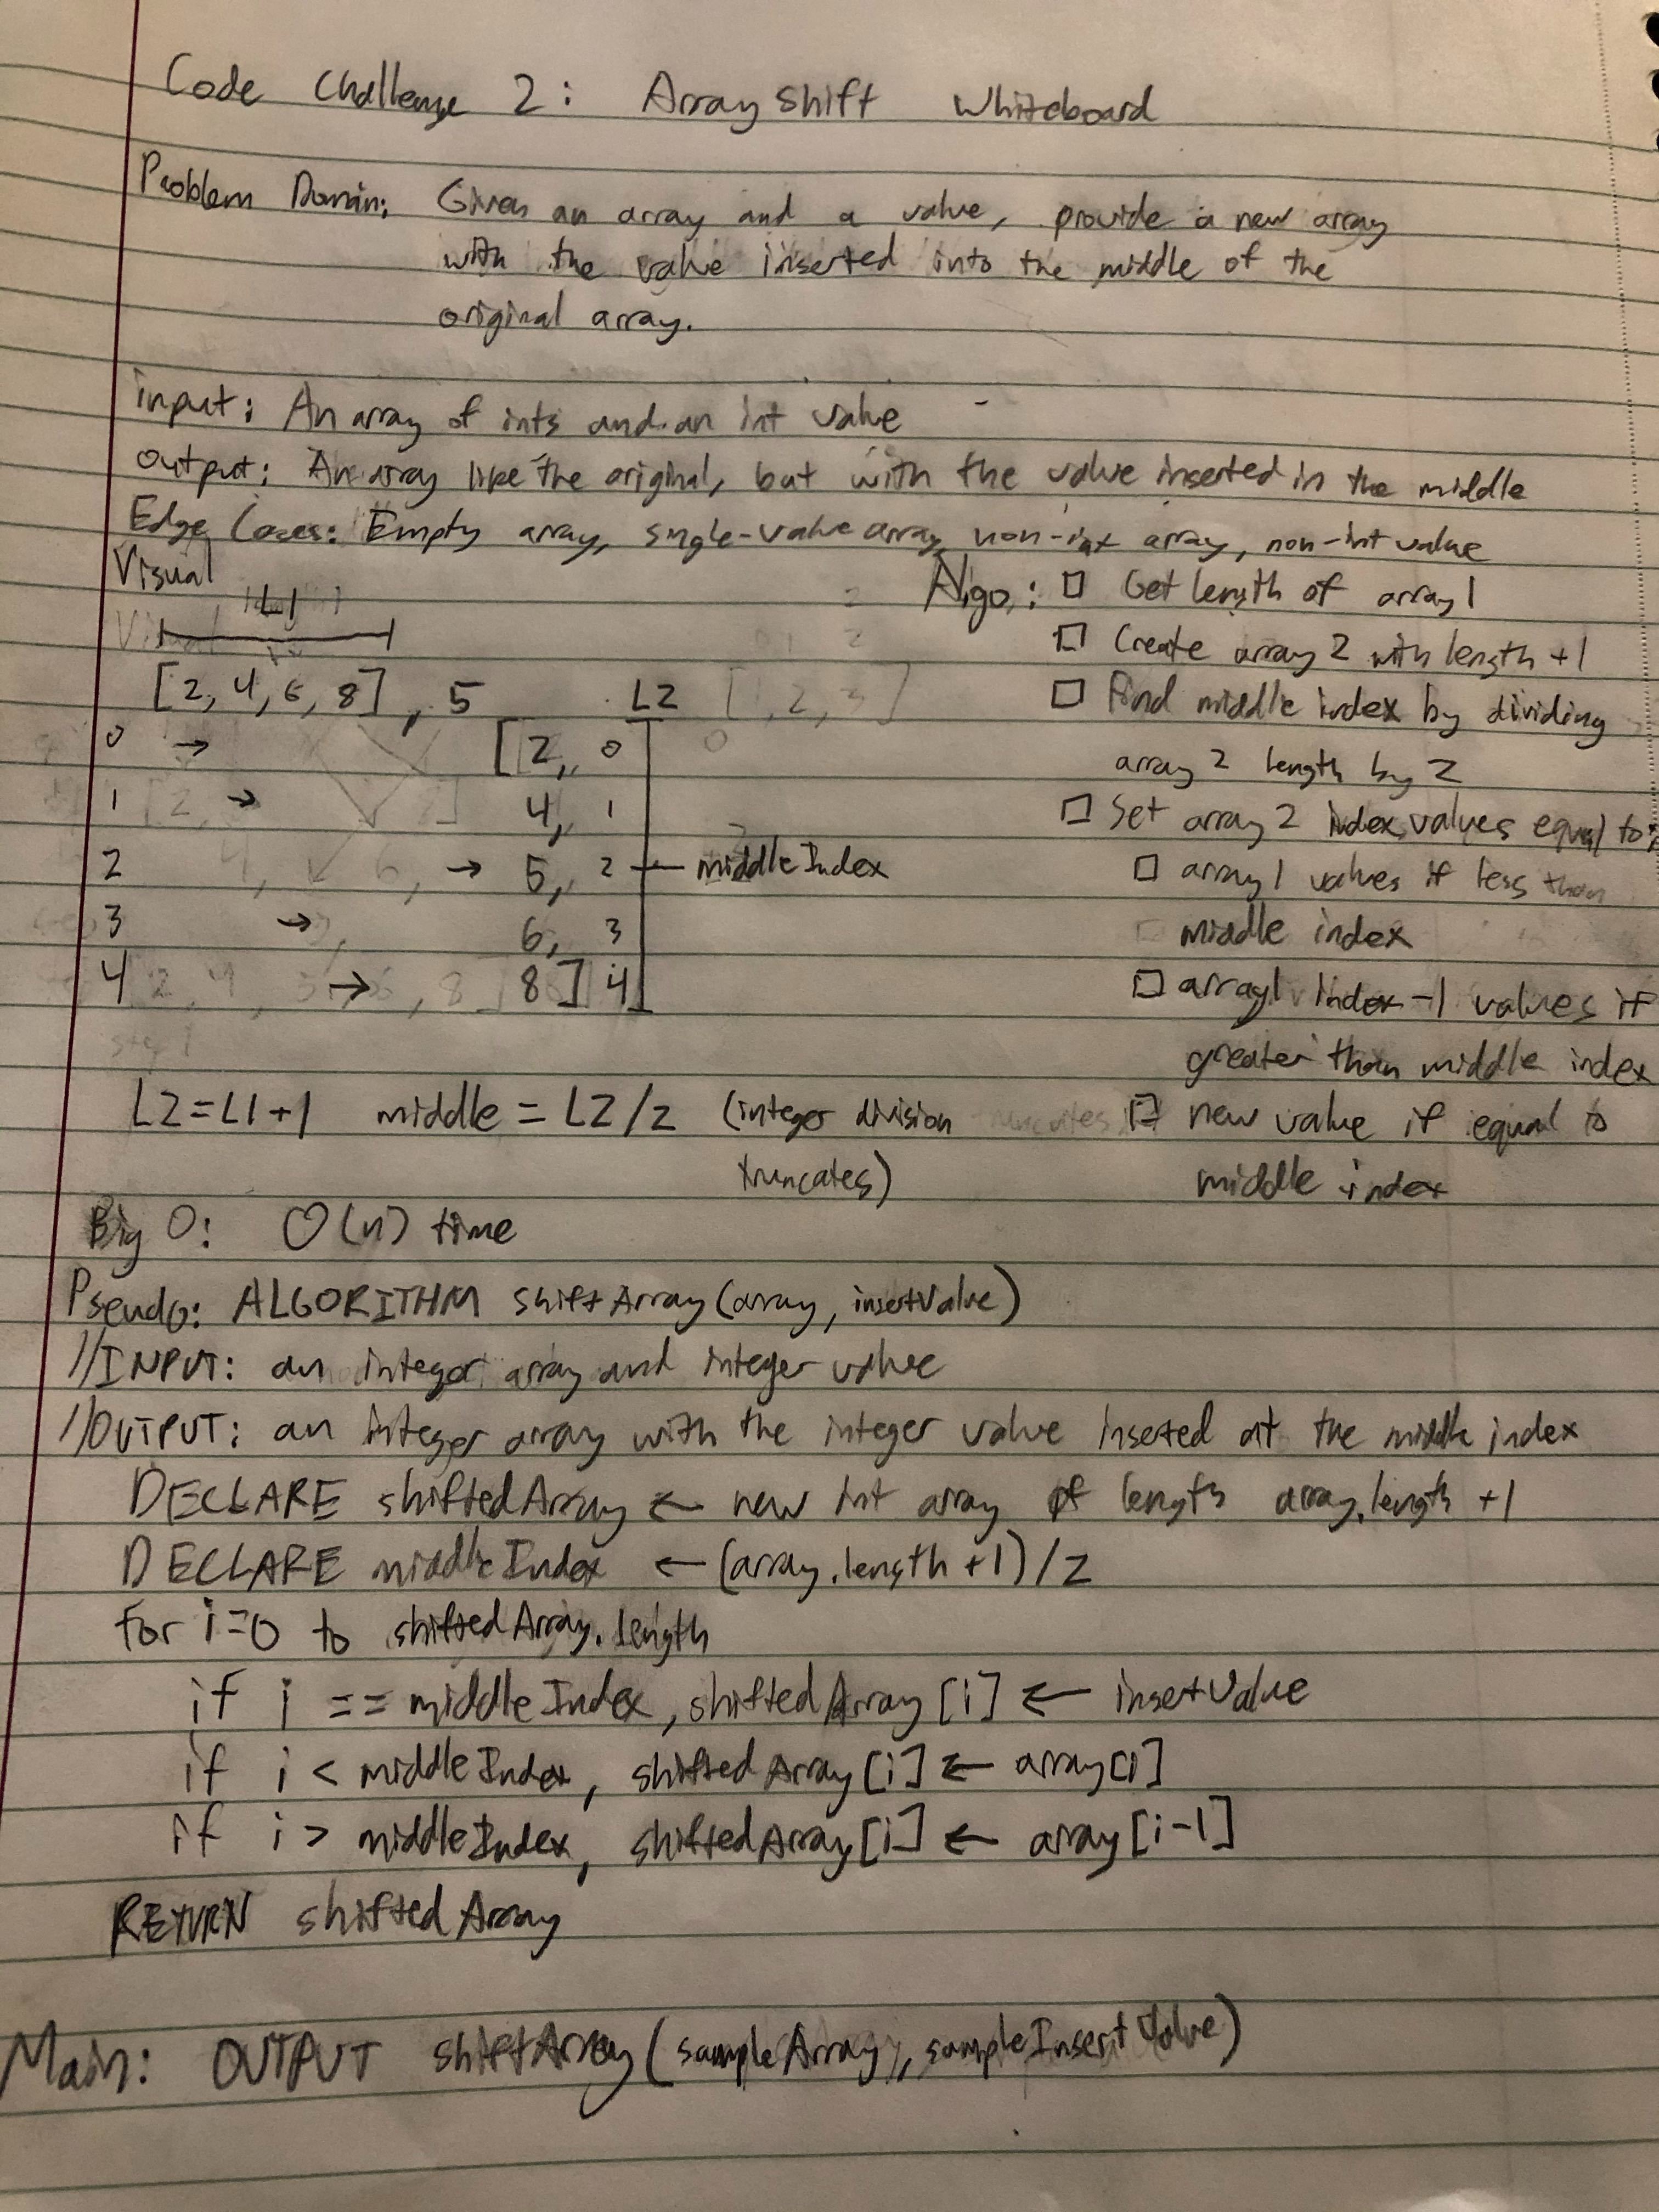 Code Challenge 2: Array Shift Whiteboard
Problem Domain: Given an array and a value, provide a new array
with the value inserted into the middle of the
original array.
input: An array of ints and an int value
output: An array like the original, but with the value inserted in the middle
Edge Cases: Empty array, single-value array, non-int array, non-int value
Visual
L1
[2, 4, 6, 8], 5 L2
0 → [2, 0
1 → 4, 1
2 → 5, 2 ← middleIndex
3 → 6, 3
4 → 8] 4
L2=L1+1 middle = L2/2 (integer division
truncates)
Algo: □ Get length of array 1
□ Create array 2 with length +1
□ Find middle index by dividing
array 2 length by 2
□ Set array 2 index values equal to:
□ array 1 values if less than
middle index
□ array1 index-1 values if
greater than middle index
□ new value if equal to
middle index
Big O: O(n) time
Pseudo: ALGORITHM shiftArray(array, insertValue)
//INPUT: an integer array and integer value
//OUTPUT: an integer array with the integer value inserted at the middle index
DECLARE shiftedArray ← new int array of length array.length +1
DECLARE middleIndex ← (array.length +1)/2
for i=0 to shiftedArray.length
if i == middleIndex, shiftedArray[i] ← insertValue
if i < middleIndex, shiftedArray[i] ← array[i]
if i > middleIndex, shiftedArray[i] ← array[i-1]
RETURN shiftedArray
Main: OUTPUT shiftArray(sampleArray, sampleInsertValue)